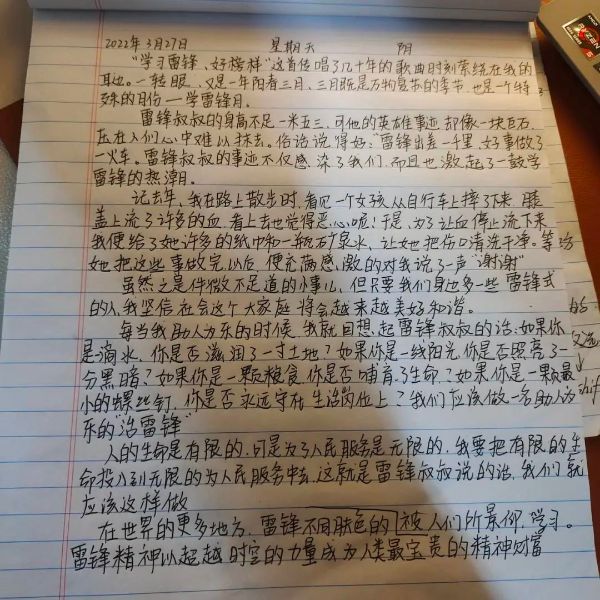 2022年3月27日 星期天 阴
"学习雷锋、好榜样"这首传唱了几十年的歌曲时刻萦绕在我的
耳边。一转眼、又是一年阳春三月、三月既是万物复苏的季节、也是一个特
殊的月份——学雷锋月。
雷锋叔叔的身高不足一米五三、可他的英雄事迹却像一块巨石
压在人们心中难以抹去。俗话说得好:"雷锋出差一千里、好事做了
一火车。雷锋叔叔的事迹不仅感染了我们、而且也激起了一股学
雷锋的热潮。
记去年、我在路上散步时、看见一个女孩从自行车上摔了下来、膝
盖上流了许多的血、看上去也觉得恶心呢!于是、为了让血停止流下来
我便给了她许多的纸巾和一瓶矿泉水、让她把伤口清洗干净。等
她把这些事做完以后、便充满感激的对我说了一声"谢谢"
虽然这是件微不足道的小事儿、但只要我们身边多一些雷锋式
的人、我坚信社会这个大家庭将会越来越美好和谐。
每当我助人为乐的时候、我就回想起雷锋叔叔的话:如果你
是滴水、你是否滋润了一寸土地?如果你是一线阳光、你是否照亮了一
分黑暗?如果你是一颗粮食、你是否哺育了生命?如果你是一颗最
小的螺丝钉、你是否永远守在生活岗位上?我们应该做一名助人为
乐的"活雷锋"
人的生命是有限的、可是为了人民服务是无限的、我要把有限的生
命投入到无限的为人民服务中去、这就是雷锋叔叔说的话、我们就
应该这样做
在世界的更多地方、雷锋不同肤色的被人们所景仰、学习。
雷锋精神以超越时空的力量成为人类最宝贵的精神财富
AMD
RYZEN